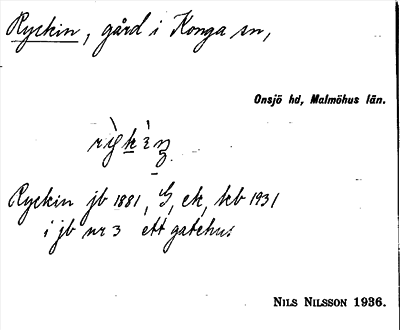 Ryckin, gård i Konga sn,
Onsjö hd, Malmöhus län.
Ryckin jb 1881, G, ek, kb 1931
i jb nr 3 ett gatehus
NILS NILSSON 1936.